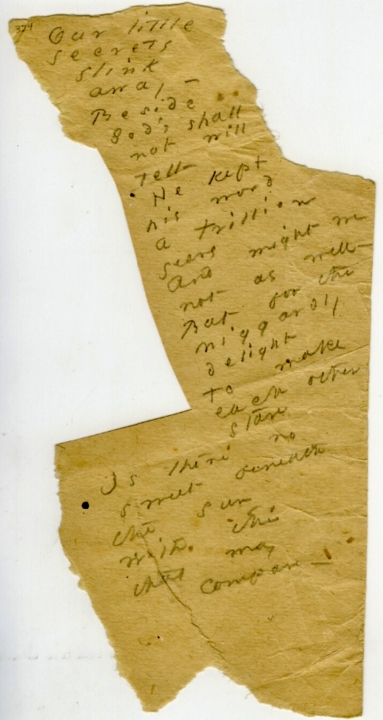 374 Our little
secrets
slink
away -
Beside
God's shall
not will
tell -
He kept
his word
a trillion
years might we
And
not as well -
But for the
niggardly
delight
to make
each other
stare
Is there no
sweet beneath
the sun
With this
that may
compare -